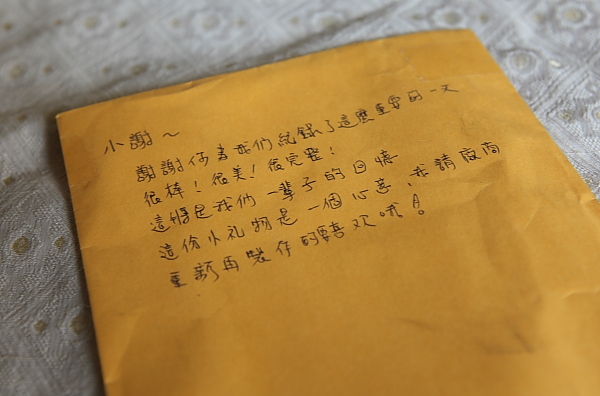 小謝～
謝謝你為我們紀錄了這麼重要的一天
很棒！很美！很完整！
這將是我們一輩子的回憶
這份小礼物是一個心意，我請廠商
重新再製作的要喜欢哦！